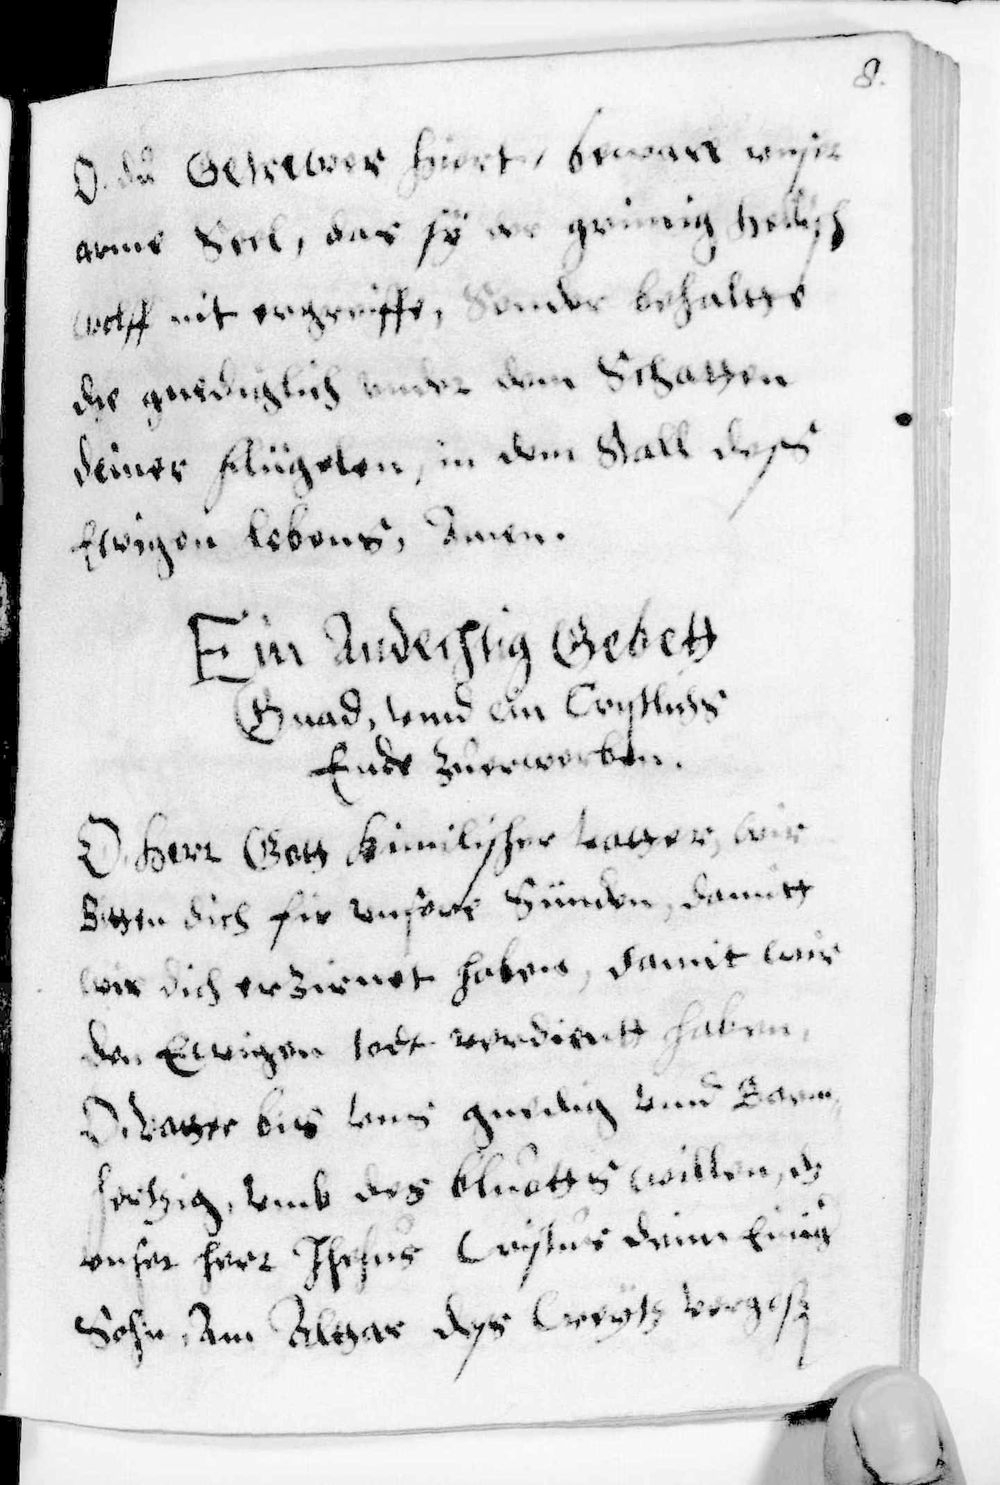 8.
O. du Getrewer hiert, bewarr unsir
arme Seel, das sÿ der grimig hellisch
wolff nit ergreiffe, Sonder behaltte
die gnediglich under dem Schatten
deiner flügelen, in dem Stall deß
Ewigen lebens, Amen.
Ein Andechtig Gebett
Gnad, unnd ein Crystlichs
Ende zuerwerben.
O. Herr Gott himilischer vatter, wir
Bitten dich für unsere Sünden, damitt
wir dich erzirnet haben, damit wir
den Ewigen todt verdientt haben,
O. vatter bis uns gnedig unnd Barm,
hertzig, umb des bluotts willen, dz
unser herr Jhesus Crystus deinn Einig
Sohn, Am Alttar deß Creÿtz vergoß